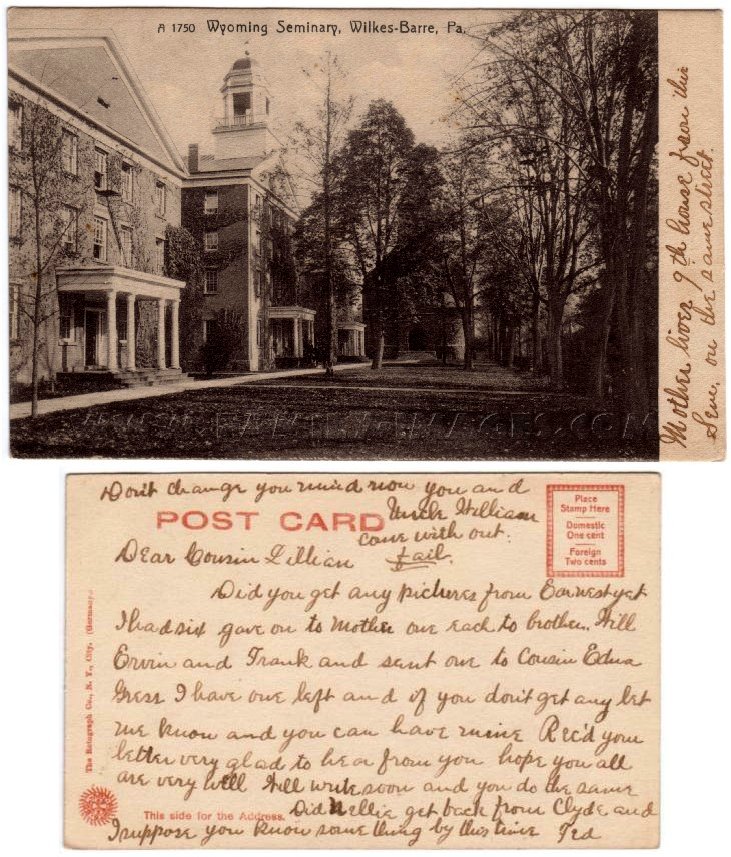 A 1750 Wyoming Seminary, Wilkes-Barre, Pa.
Mother lives 9th house from this
Sem. on the same street.
Don't change you mind now you and
Uncle William
come with out
fail.
POST CARD
Place
Stamp Here
Domestic
One cent
Foreign
Two cents
Dear Cousin Lillian
Did you get any pictures from Earnest yet
I had six gave on to Mother one each to brother. Will
Ervin and Frank and sent one to Cousin Edna
Gress I have one left and if you don't get any let
me know and you can have mine Rec'd your
letter very glad to hear from you hope you all
are very well Will write soon and you do the same
Did Nellie get back from Clyde and
I suppose you know some thing by this time Ted
This side for the Address.
The Rotograph Co., N. Y., City. (Germany.)